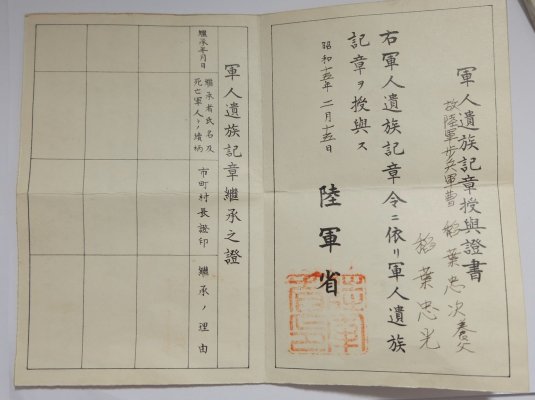 軍人遺族記章授與證書
故陸軍步兵軍曹 稻葉忠次 養父
稻葉忠光
右軍人遺族記章令ニ依リ軍人遺族
記章ヲ授與ス
昭和十五年二月十五日
陸軍省
軍人遺族記章繼承之證
繼承年月日
繼承者氏名及
死亡軍人トノ續柄
市町村長證印
繼承ノ理由